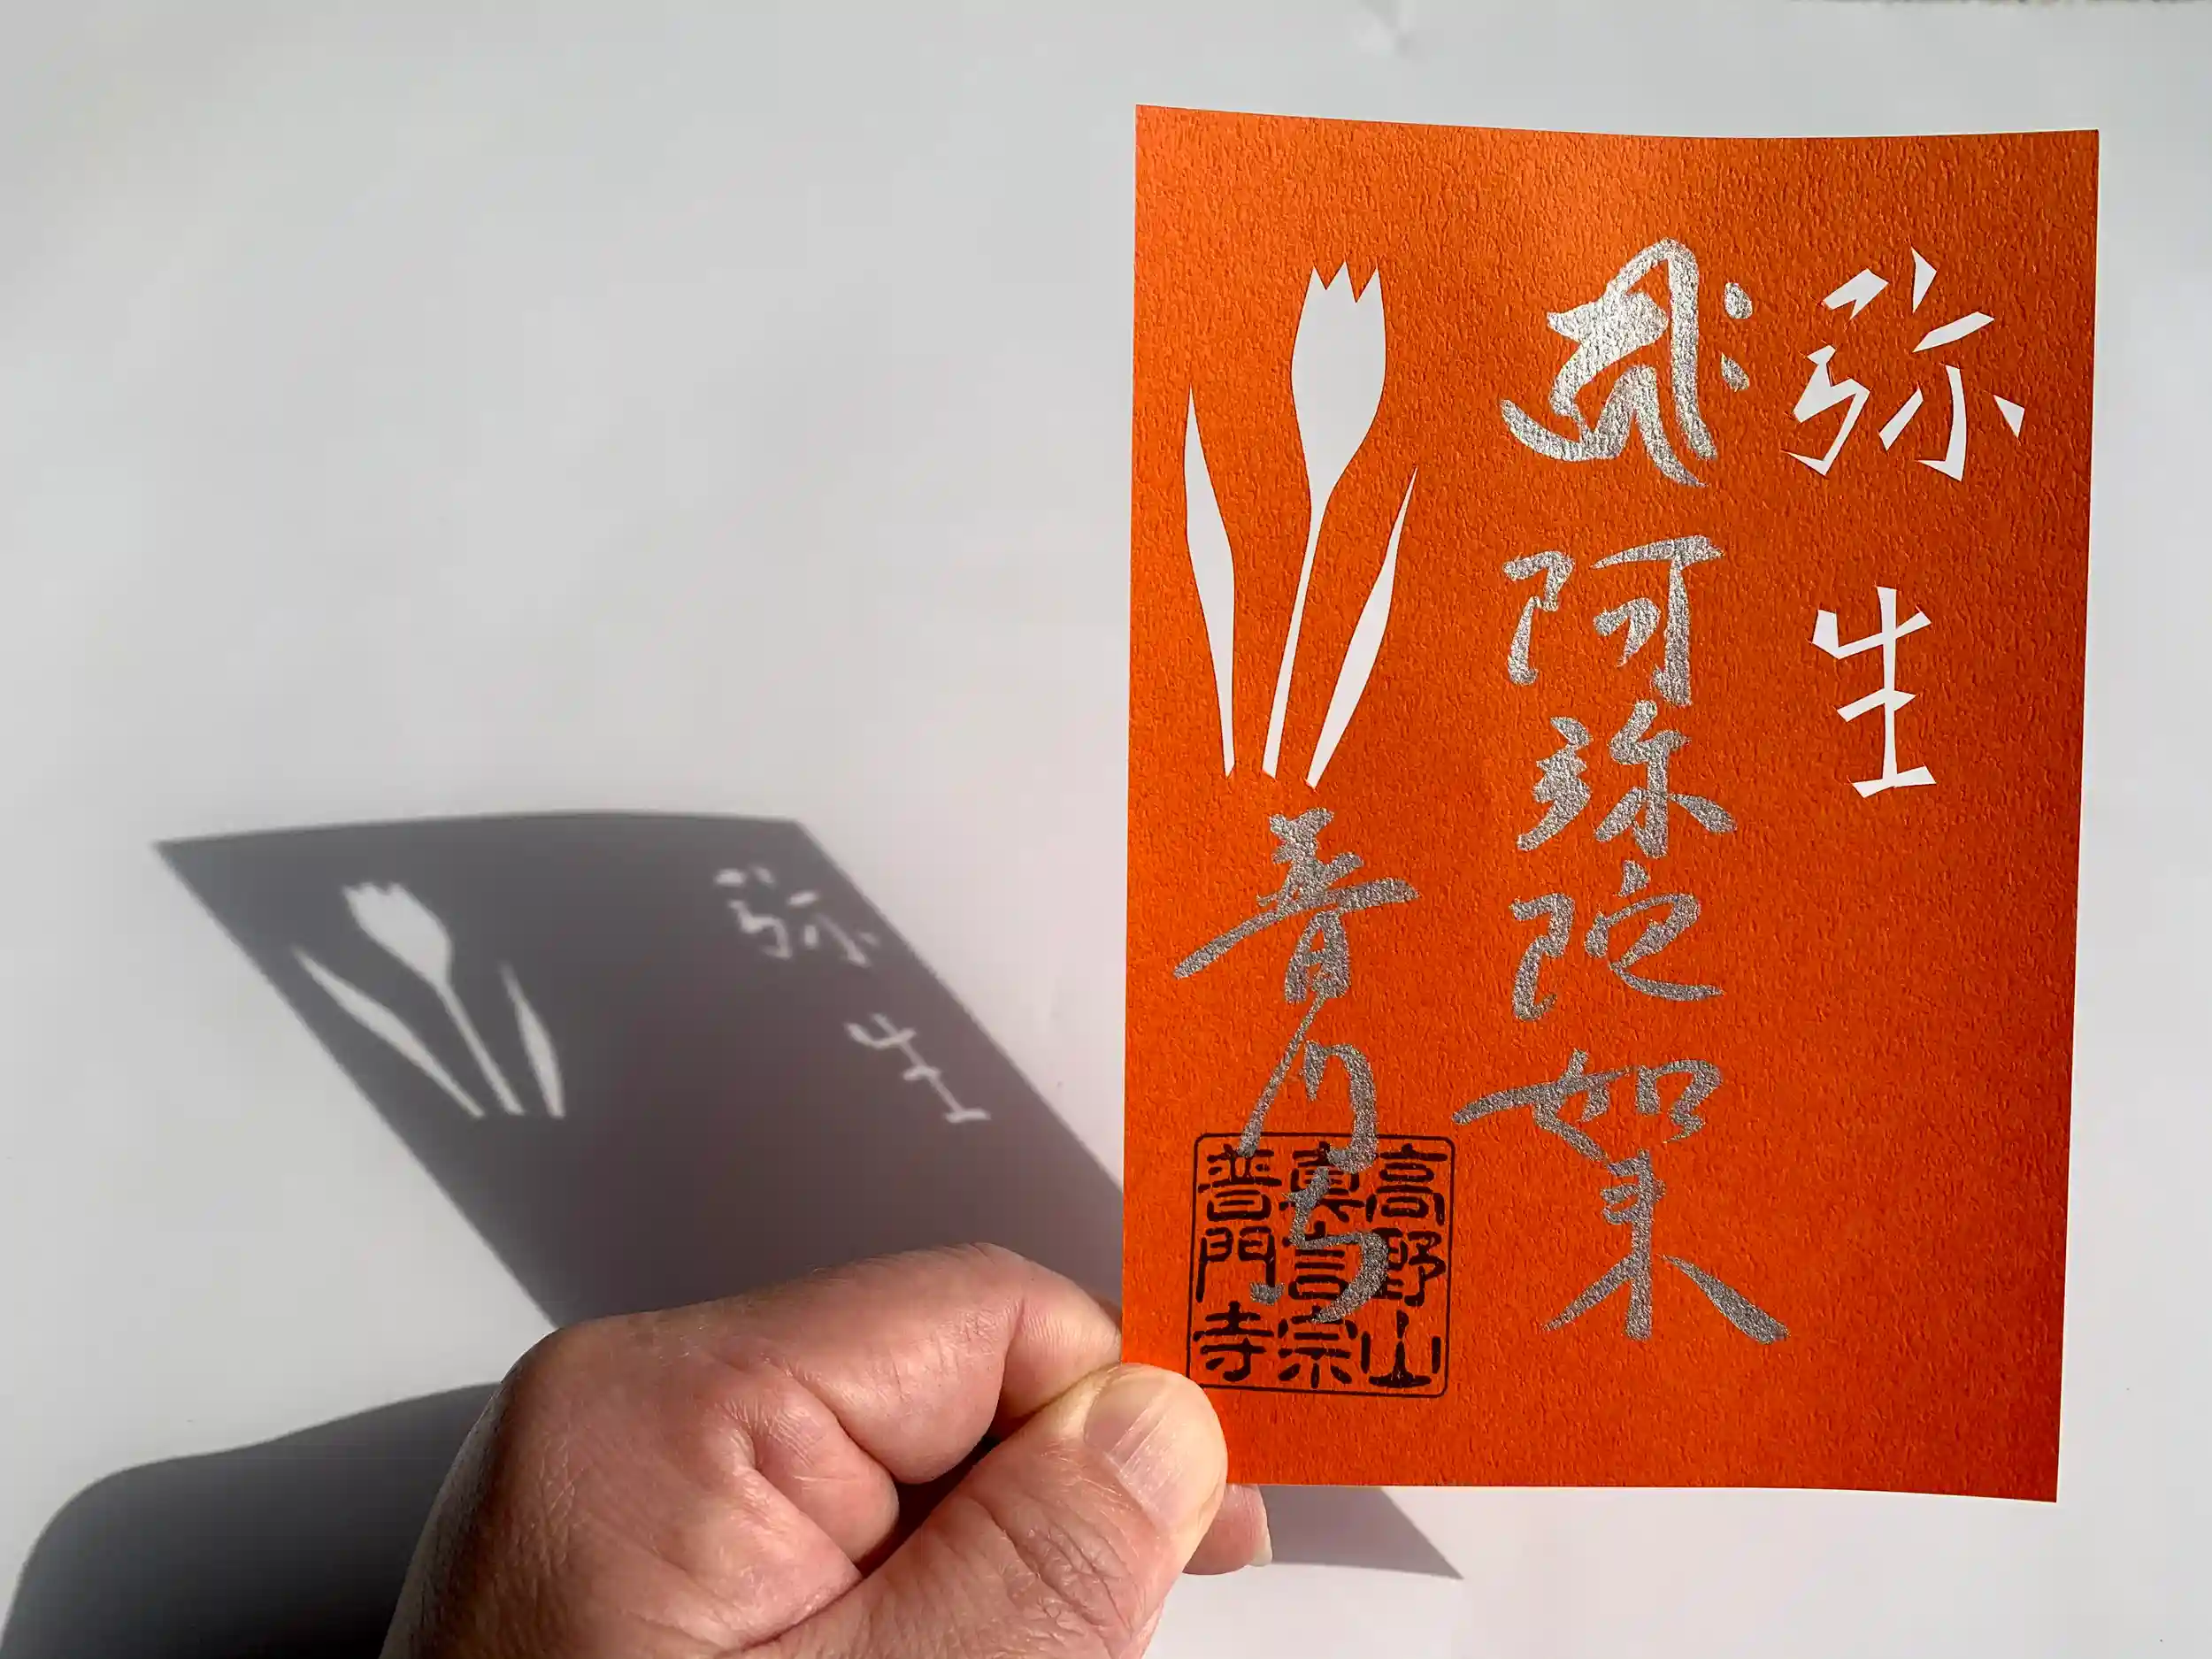 弥生
𑖮𑖿𑖨𑖱𑖾
阿弥陀如来
普門寺
高野山
真言宗
普門寺
弥生